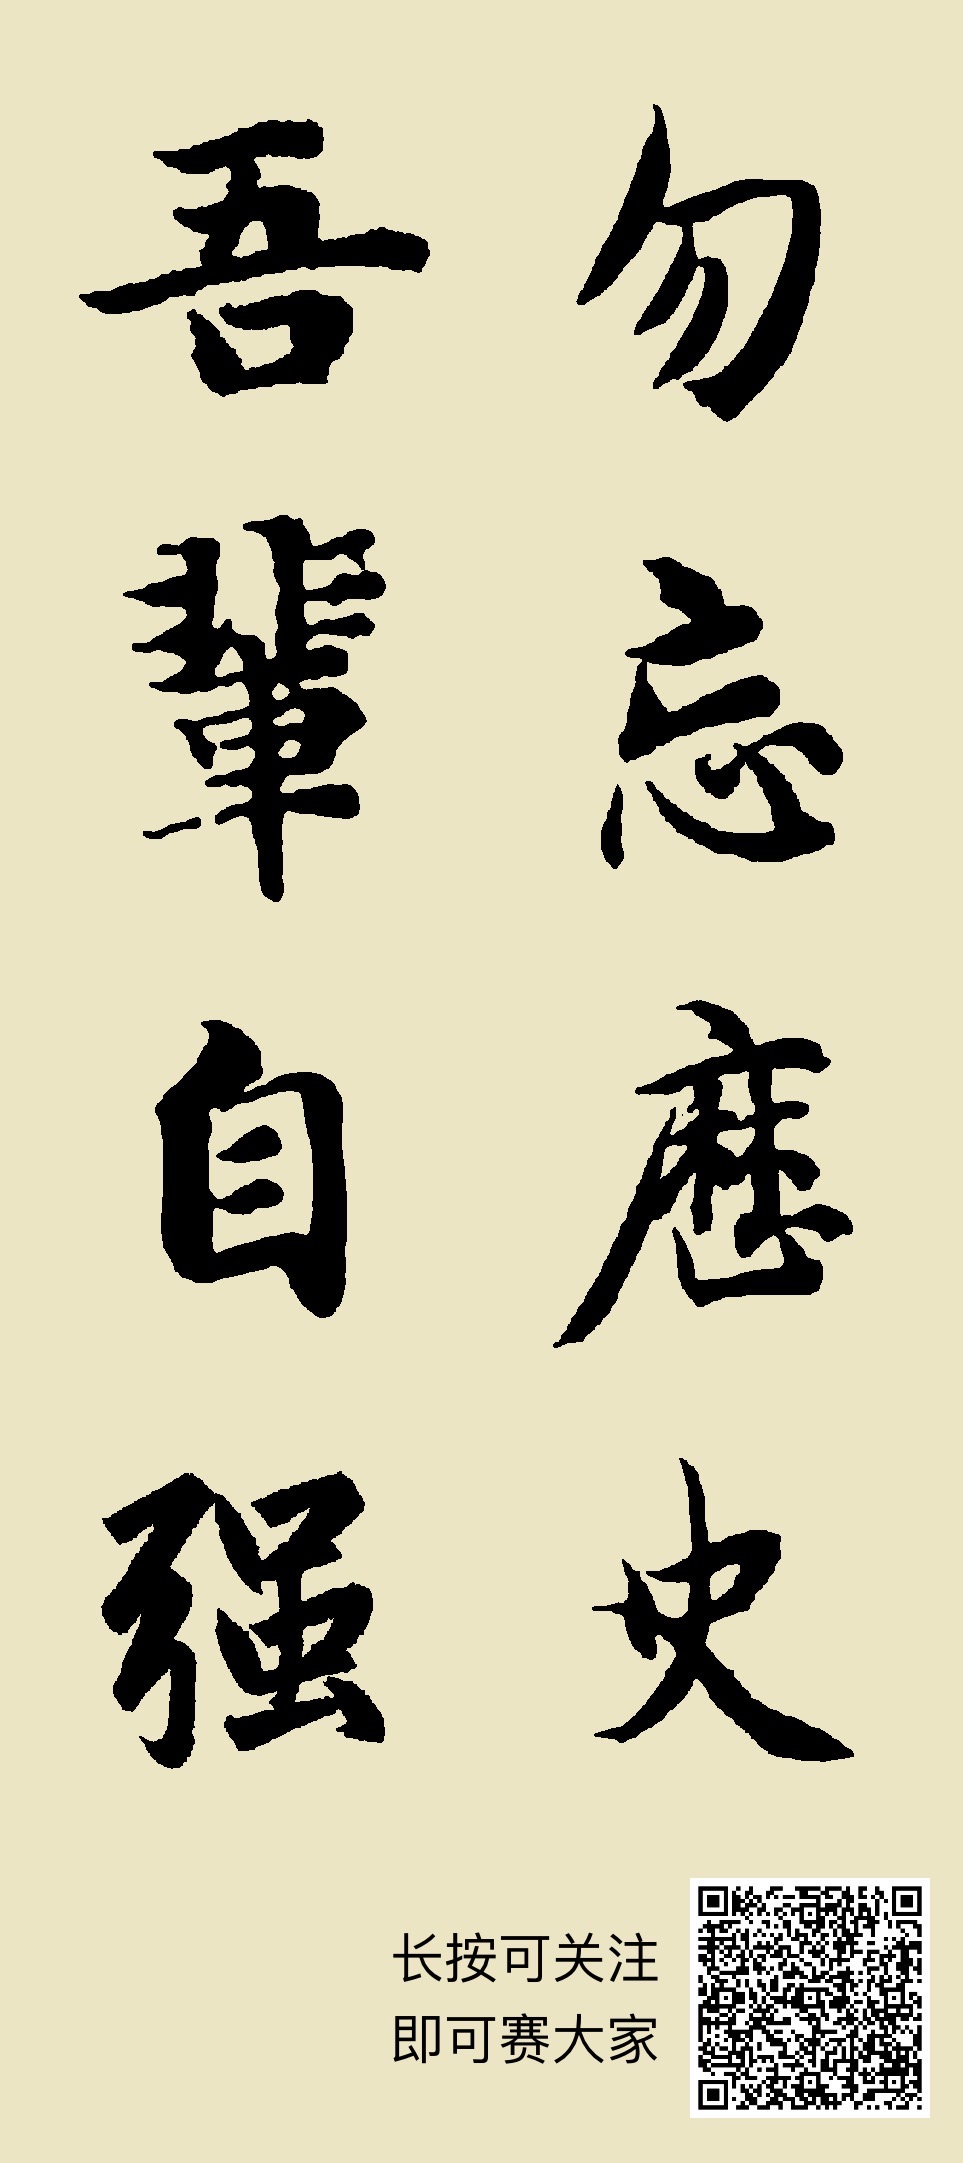 勿忘歷史
吾輩自强
长按可关注
即可赛大家